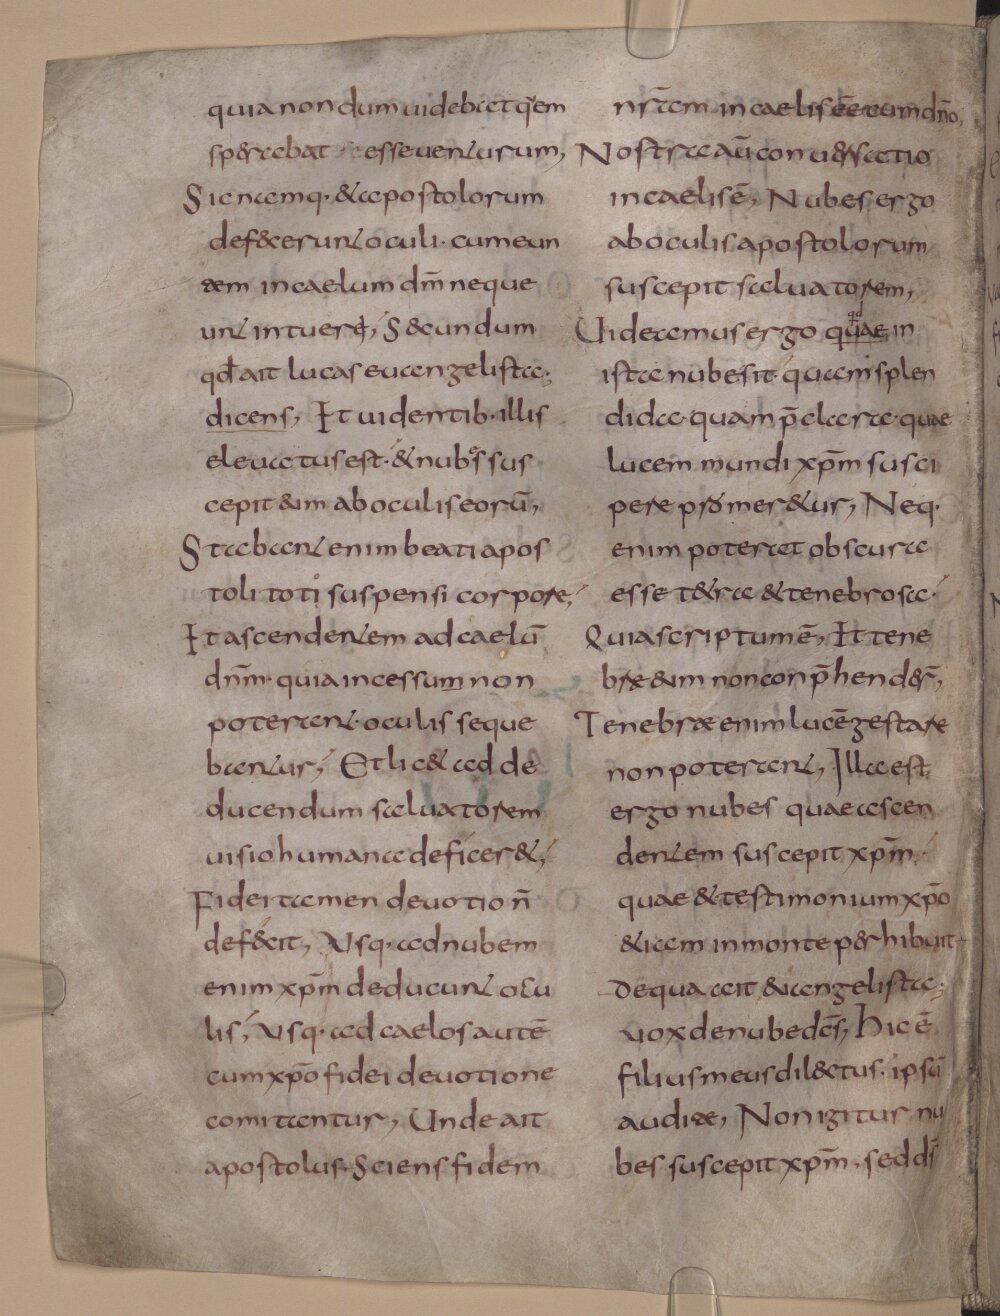 quia non dum uidebat quem
sperabat esse uenturum,
Sic namq· & apostolorum
defecerunt oculi· cum eun
tem in caelum dn̄m neque
unt intueri, Secundum
qd̄ ait lucas euangelista;
dicens, Et uidentib· illis
eleuatus est· & nubes sus
cepit eum ab oculis eorū,
Stabant enim beati apos
toli toti suspensi corpore,
Et ascendentem ad caelū
dn̄m· quia incessum non
poterant· oculis seque
bantur, Et lic& ad de
ducendum saluatorem
uisio humana deficer&,
Fidei tamen deuotio n̄
defecit, Usq· ad nubem
enim xp̄m deducunt ocu
lis, Usq· ad caelos autē
cum xp̄o fidei deuotione
comitantur, Unde ait
apostolus· Sciens fidem
nr̄am in caelis eē cum dn̄o,
Nostra aū conuersatio
in caelis ē, Nubes ergo
ab oculis apostolorum
suscepit saluatorem,
Uideamus ergo quae in
ista nubes sit· quam splen
dida· quam p̄clara· quae
lucem mundi xp̄m susci
pere promer&ur, Neq·
enim poterat obscura
esse t&ra & tenebrosa·
Quia scriptum ē, Et tene
brae eum non conp̄hender̄,
Tenebrae enim lucē gestare
non poterant, Illa est
ergo nubes quae ascen
dentem suscepit xp̄m·
quae & testimonium xp̄o
&iam in monte perhibuit
De qua ait euangelista;
uox de nube dc̄s, Hic ē
filius meus dilectus· ipsū
audite, Non igitur nu
bes suscepit xp̄m· sed ds̄